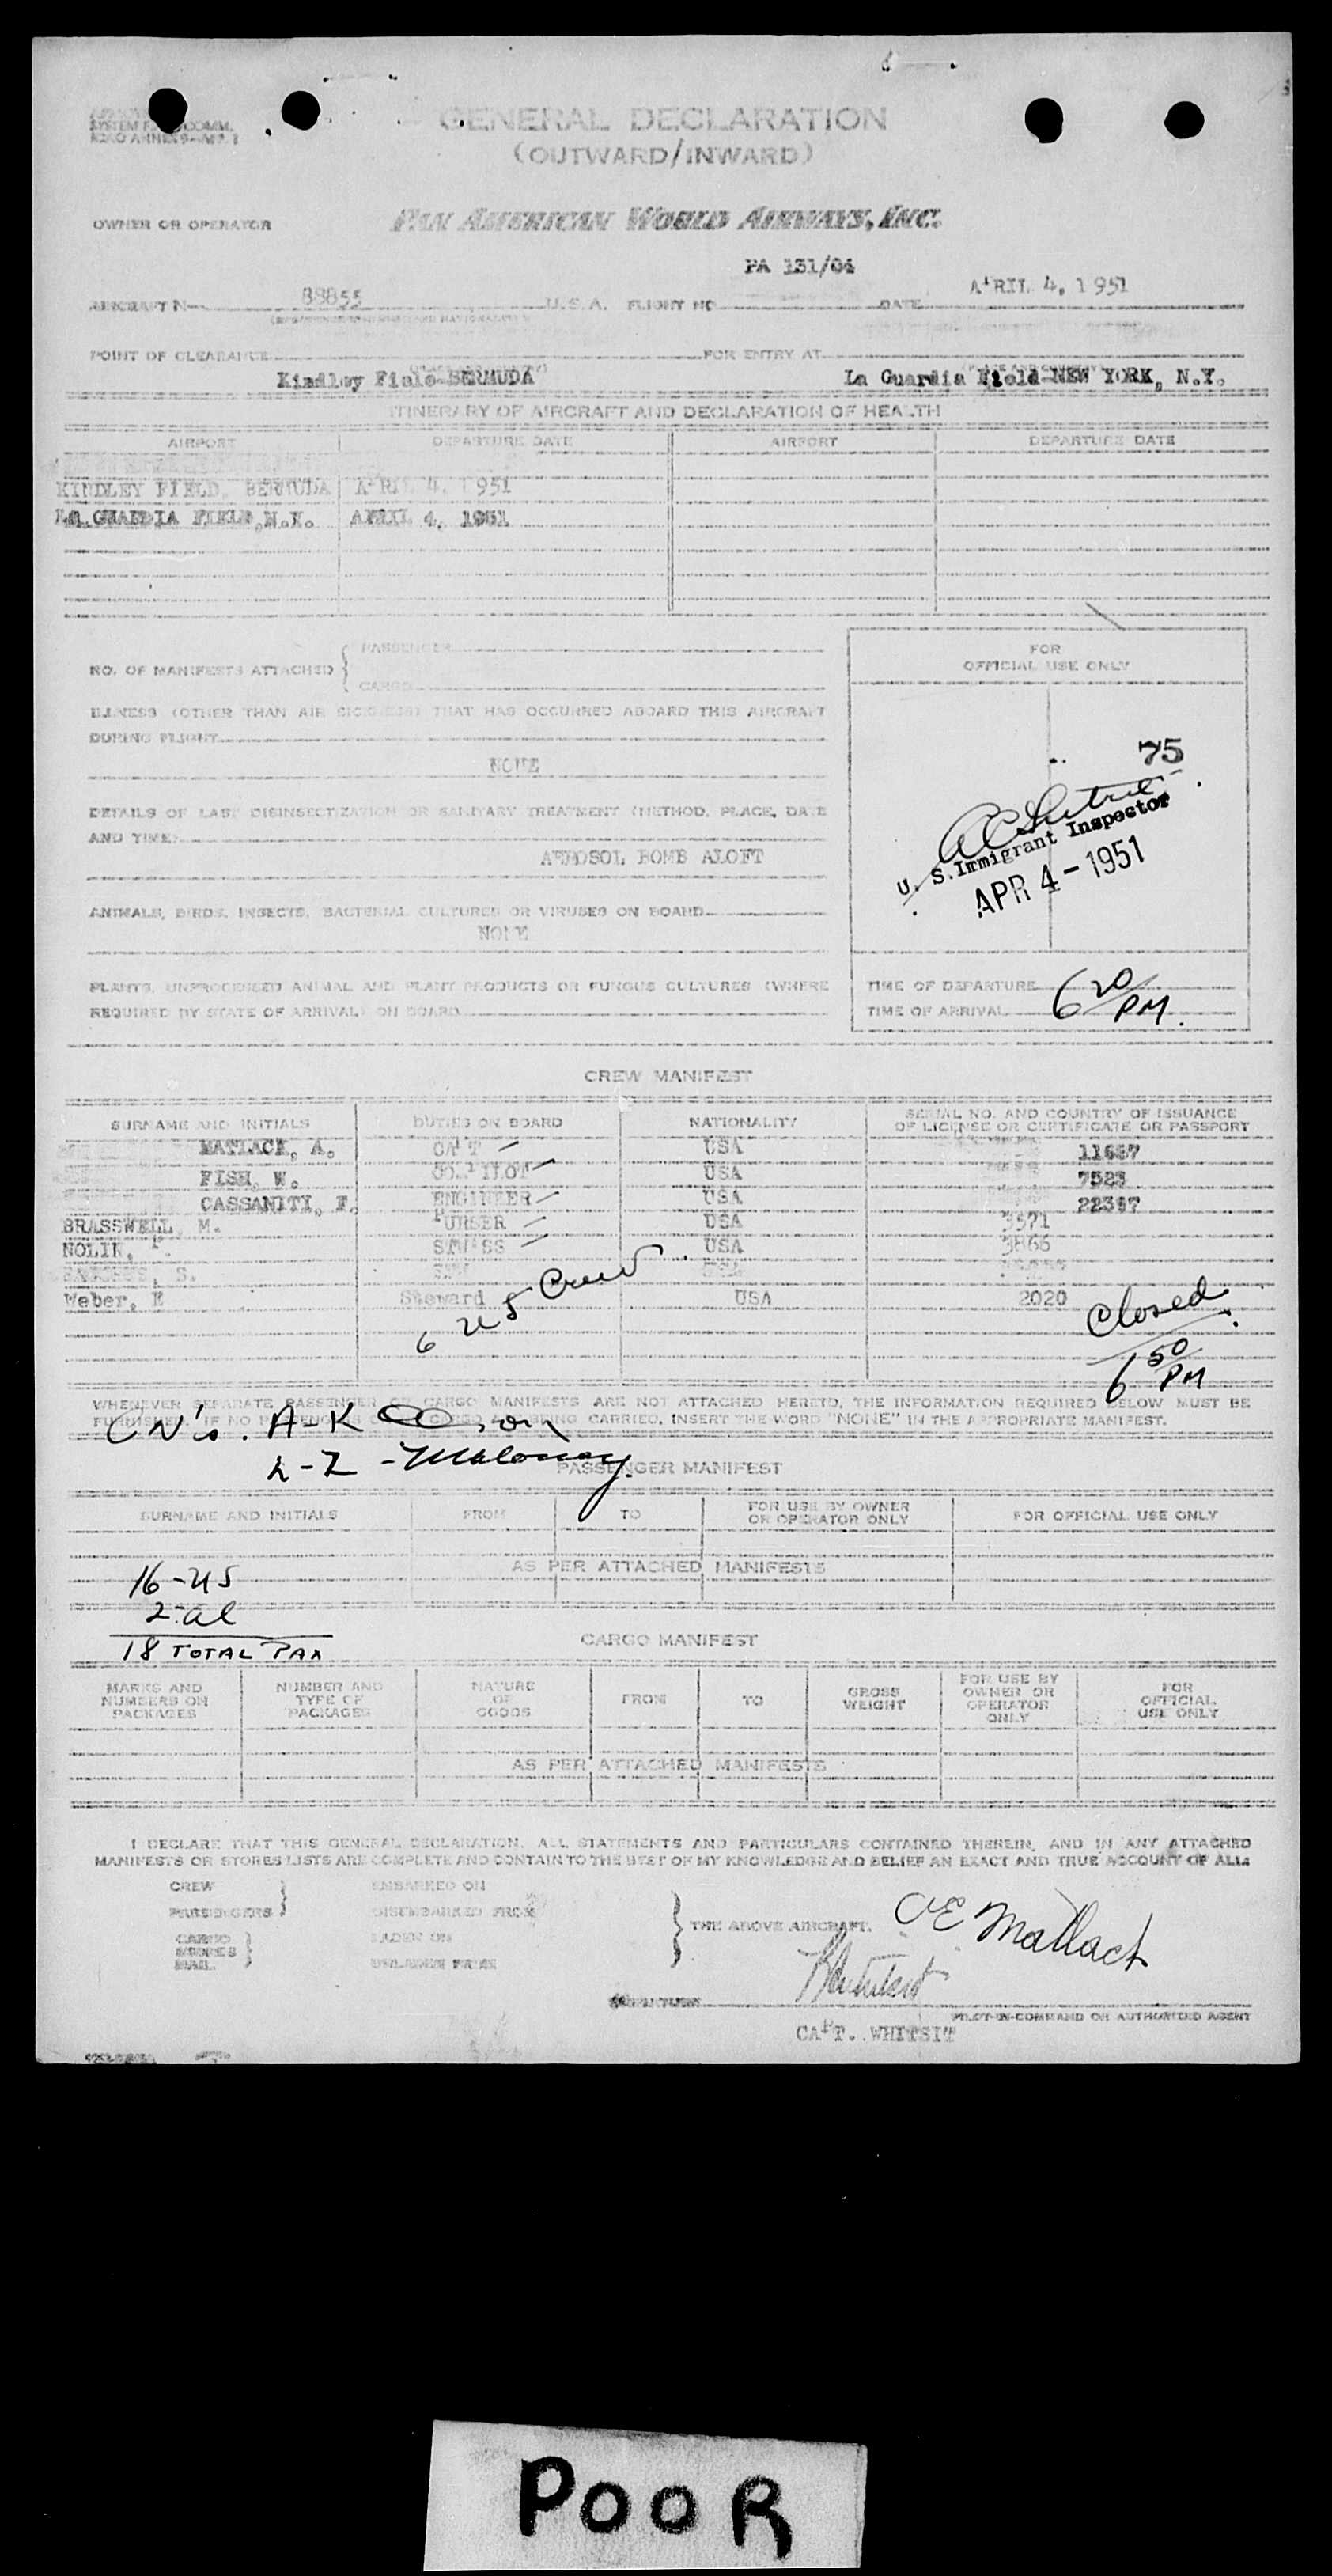 SYSTEM FORM COMM.
GENERAL DECLARATION
(OUTWARD/INWARD)
OWNER OR OPERATOR PAN AMERICAN WORLD AIRWAYS, INC.
PA 131/04
AIRCRAFT N- 88855 U.S.A. FLIGHT NO. DATE APRIL 4, 1951
POINT OF CLEARANCE FOR ENTRY AT
Kindley Field-BERMUDA La Guardia Field-NEW YORK, N.Y.
ITINERARY OF AIRCRAFT AND DECLARATION OF HEALTH
AIRPORT DEPARTURE DATE AIRPORT DEPARTURE DATE
KINDLEY FIELD, BERMUDA APRIL 4, 1951
LA GUARDIA FIELD, N.Y. APRIL 4, 1951
NO. OF MANIFESTS ATTACHED { PASSENGER
CARGO
ILLNESS (OTHER THAN AIR SICKNESS) THAT HAS OCCURRED ABOARD THIS AIRCRAFT
DURING FLIGHT
NONE
DETAILS OF LAST DISINSECTIZATION OR SANITARY TREATMENT (METHOD, PLACE, DATE
AND TIME)
AEROSOL BOMB ALOFT
ANIMALS, BIRDS, INSECTS, BACTERIAL CULTURES OR VIRUSES ON BOARD
NONE
PLANTS, UNPROCESSED ANIMAL AND PLANT PRODUCTS OR FUNGUS CULTURES (WHERE
REQUIRED BY STATE OF ARRIVAL) ON BOARD
FOR
OFFICIAL USE ONLY
75
U. S. Immigrant Inspector
APR 4 - 1951
TIME OF DEPARTURE
TIME OF ARRIVAL 6 20/PM.
CREW MANIFEST
SURNAME AND INITIALS DUTIES ON BOARD NATIONALITY SERIAL NO. AND COUNTRY OF ISSUANCE
OF LICENSE OR CERTIFICATE OR PASSPORT
MATLACK, A. CAPT USA 11687
FISH, W. CO-PILOT USA 7523
CASSANITI, F. ENGINEER USA 22387
BRASSWELL, M. PURSER USA 3571
NOLIN, P. STWDSS USA 3866
Weber, E Steward USA 2020
6 US Crew
Closed
6 50/PM
WHENEVER SEPARATE PASSENGER OR CARGO MANIFESTS ARE NOT ATTACHED HERETO, THE INFORMATION REQUIRED BELOW MUST BE
FURNISHED. IF NO PASSENGERS OR CARGO ARE BEING CARRIED, INSERT THE WORD "NONE" IN THE APPROPRIATE MANIFEST.
CN's. A-K
L-Z - Maloney.
PASSENGER MANIFEST
SURNAME AND INITIALS FROM TO FOR USE BY OWNER
OR OPERATOR ONLY FOR OFFICIAL USE ONLY
AS PER ATTACHED MANIFESTS
16-US
2-al
18 TOTAL PAX
CARGO MANIFEST
MARKS AND
NUMBERS ON
PACKAGES NUMBER AND
TYPE OF
PACKAGES NATURE
OF
GOODS FROM TO GROSS
WEIGHT FOR USE BY
OWNER OR
OPERATOR
ONLY FOR
OFFICIAL
USE ONLY
AS PER ATTACHED MANIFESTS
I DECLARE THAT THIS GENERAL DECLARATION, ALL STATEMENTS AND PARTICULARS CONTAINED THEREIN, AND IN ANY ATTACHED
MANIFESTS OR STORES LISTS ARE COMPLETE AND CONTAIN TO THE BEST OF MY KNOWLEDGE AND BELIEF AN EXACT AND TRUE ACCOUNT OF ALL:
CREW
PASSENGERS } EMBARKED ON
DISEMBARKED FROM
CARGO
STORES
MAIL } LADEN ON
UNLADEN FROM
} THE ABOVE AIRCRAFT.
Matlack
SIGNATURE
PILOT-IN-COMMAND OR AUTHORIZED AGENT
CAPT. WHITSIT
POOR